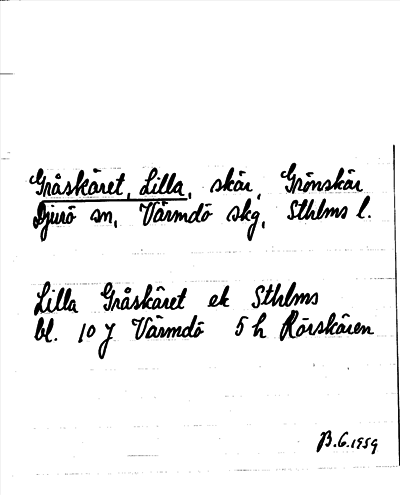 Gråskäret, Lilla, skär, Grönskär
Djurö sn, Värmdö skg, Sthlms l.
Lilla Gråskäret ek Sthlms
bl. 10 J Värmdö 5 h Rörskären
B.G. 1959